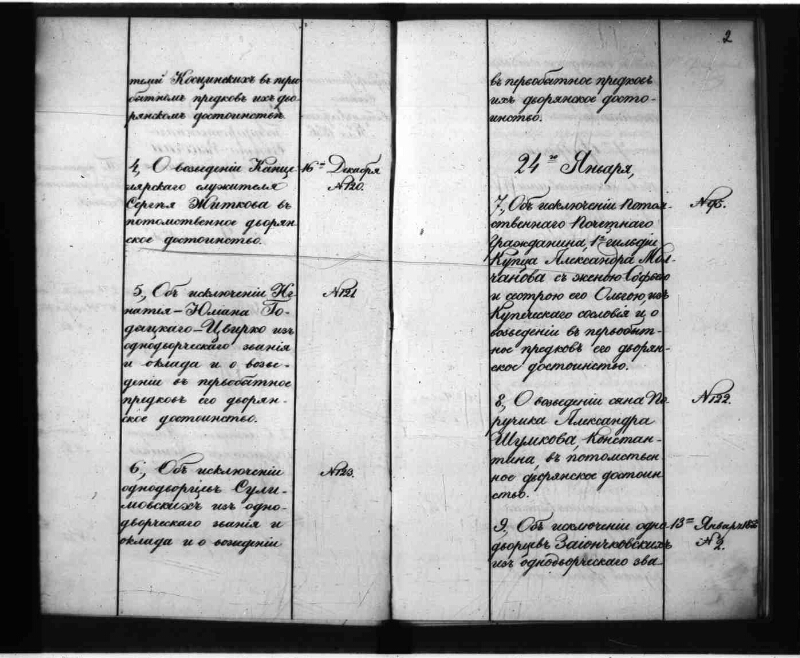 телей Косцинскихъ въ перво
бытномъ предковъ ихъ дво
рянскомъ достоинствѣ.
4, О возведеніи Канце 16го Декабря
лярскаго служителя №120.
Сергѣя Житкова въ
потомственное дворян
ское достоинство.
5, Объ исключеніи №121
Годыцкаго-Цвирко изъ
однодворческаго званія
и оклада и о возве
деніи въ первобытное
предковъ его дворян
ское достоинство.
6, Объ исключеніи №123.
однодворцевъ Сули-
мовскихъ изъ одно-
дворческаго званія и
оклада и о возведеніи
2
въ первобытное предковъ
ихъ дворянское досто-
инство.
24го Января,
7, Объ исключеніи Потом №95.
ственнаго Почетнаго
Гражданина, 1й гильдіи
Купца Александра Мол-
чанова съ женою Софьею
и сестрою его Ольгою, изъ
Купеческаго сословія и о
возведеніи въ первобыт-
ное предковъ его дворян-
ское достоинство.
8, О возведеніи сына По №122.
ручика Александра
Шумкова Констан-
тина въ потомствен
ное дворянское достоин
ство.
9, Объ исключеніи одно 13го Января
дворцевъ Заіончковскихъ № 2.
изъ однодворческаго зва